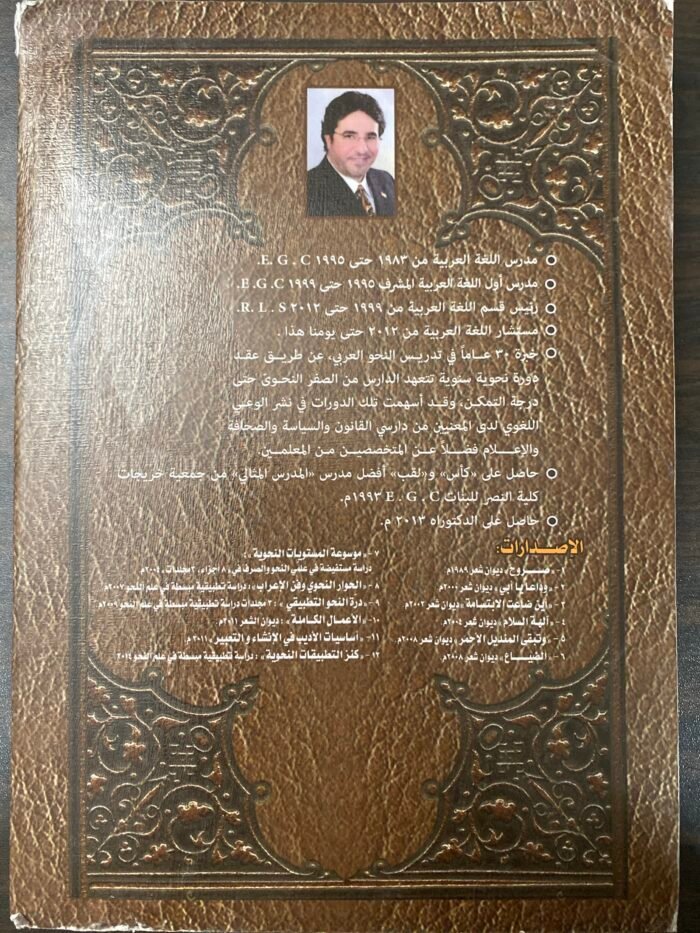 مدرس اللغة العربية من ١٩٨٣ حتى ١٩٩٥ E. G . C.
مدرس أول اللغة العربية المشرف ١٩٩٥ حتى ١٩٩٩ E.G.C.
رئيس قسم اللغة العربية من ١٩٩٩ حتى ٢٠١٢ R. L . S.
مستشار اللغة العربية من ٢٠١٢ حتى يومنا هذا .
خبرة ٣٠ عـاماً في تدريـس النحو العربي، عن طريـق عقـد
دورة نحوية سنوية تتعهد الدارس من الصفر النحوىّ حتى
درجة التمكـن، وقـد أسهمت تلك الدورات في نشر الوعـي
اللغوي لدى المعنيين من دارسي القانون والسياسة والصحافة
والإعـلام فضـلاً عـن المتخصصيـن مـن المعلميـن.
حاصل على «كأس» و«لقب» أفضل مدرس «المدرس المثالي» من جمعية خريجات
كلية النصر للبنات E . G . C ١٩٩٣م.
حاصل على الدكتوراه ٢٠١٣ م.
الإصـدارات:
١- « صـروح » ديوان شعر ١٩٨٩م.
٢- « وداعاً يا أبي » ديوان شعر ٢٠٠٠م.
٣- « أين ضاعت الابتسامة » ديوان شعر ٢٠٠٢م
٤- « آلهة السلام » ديوان شعر ٢٠٠٤م.
٥- « وتبقى المنديل الأحمر » ديوان شعر ٢٠٠٨م.
٦- « الضيـاع » ديوان شعر ٢٠٠٨م.
٧- « موسوعة المستويات النحوية » :
دراسة مستفيضة في علمي النحو والصرف في ٨ أجزاء، ٣ مجلدات، ٢٠٠٤م.
٨- « الحوار النحوي وفن الإعراب » : دراسة تطبيقية مبسطة في علم النحو ٢٠٠٧م
٩- « درة النحو التطبيقي » : ٣ مجلدات دراسة تطبيقية مبسطة في علم النحو ٢٠٠٩م
١٠- « الأعمـال الكـاملـة » : ديوان الشعر ٢٠١١م
١١- « أساسيات الأديب في الإنشاء والتعبير » ٢٠١١م
١٢- « كنز التطبيقات النحوية » : دراسة تطبيقية مبسطة في علم النحو ٢٠١٤م